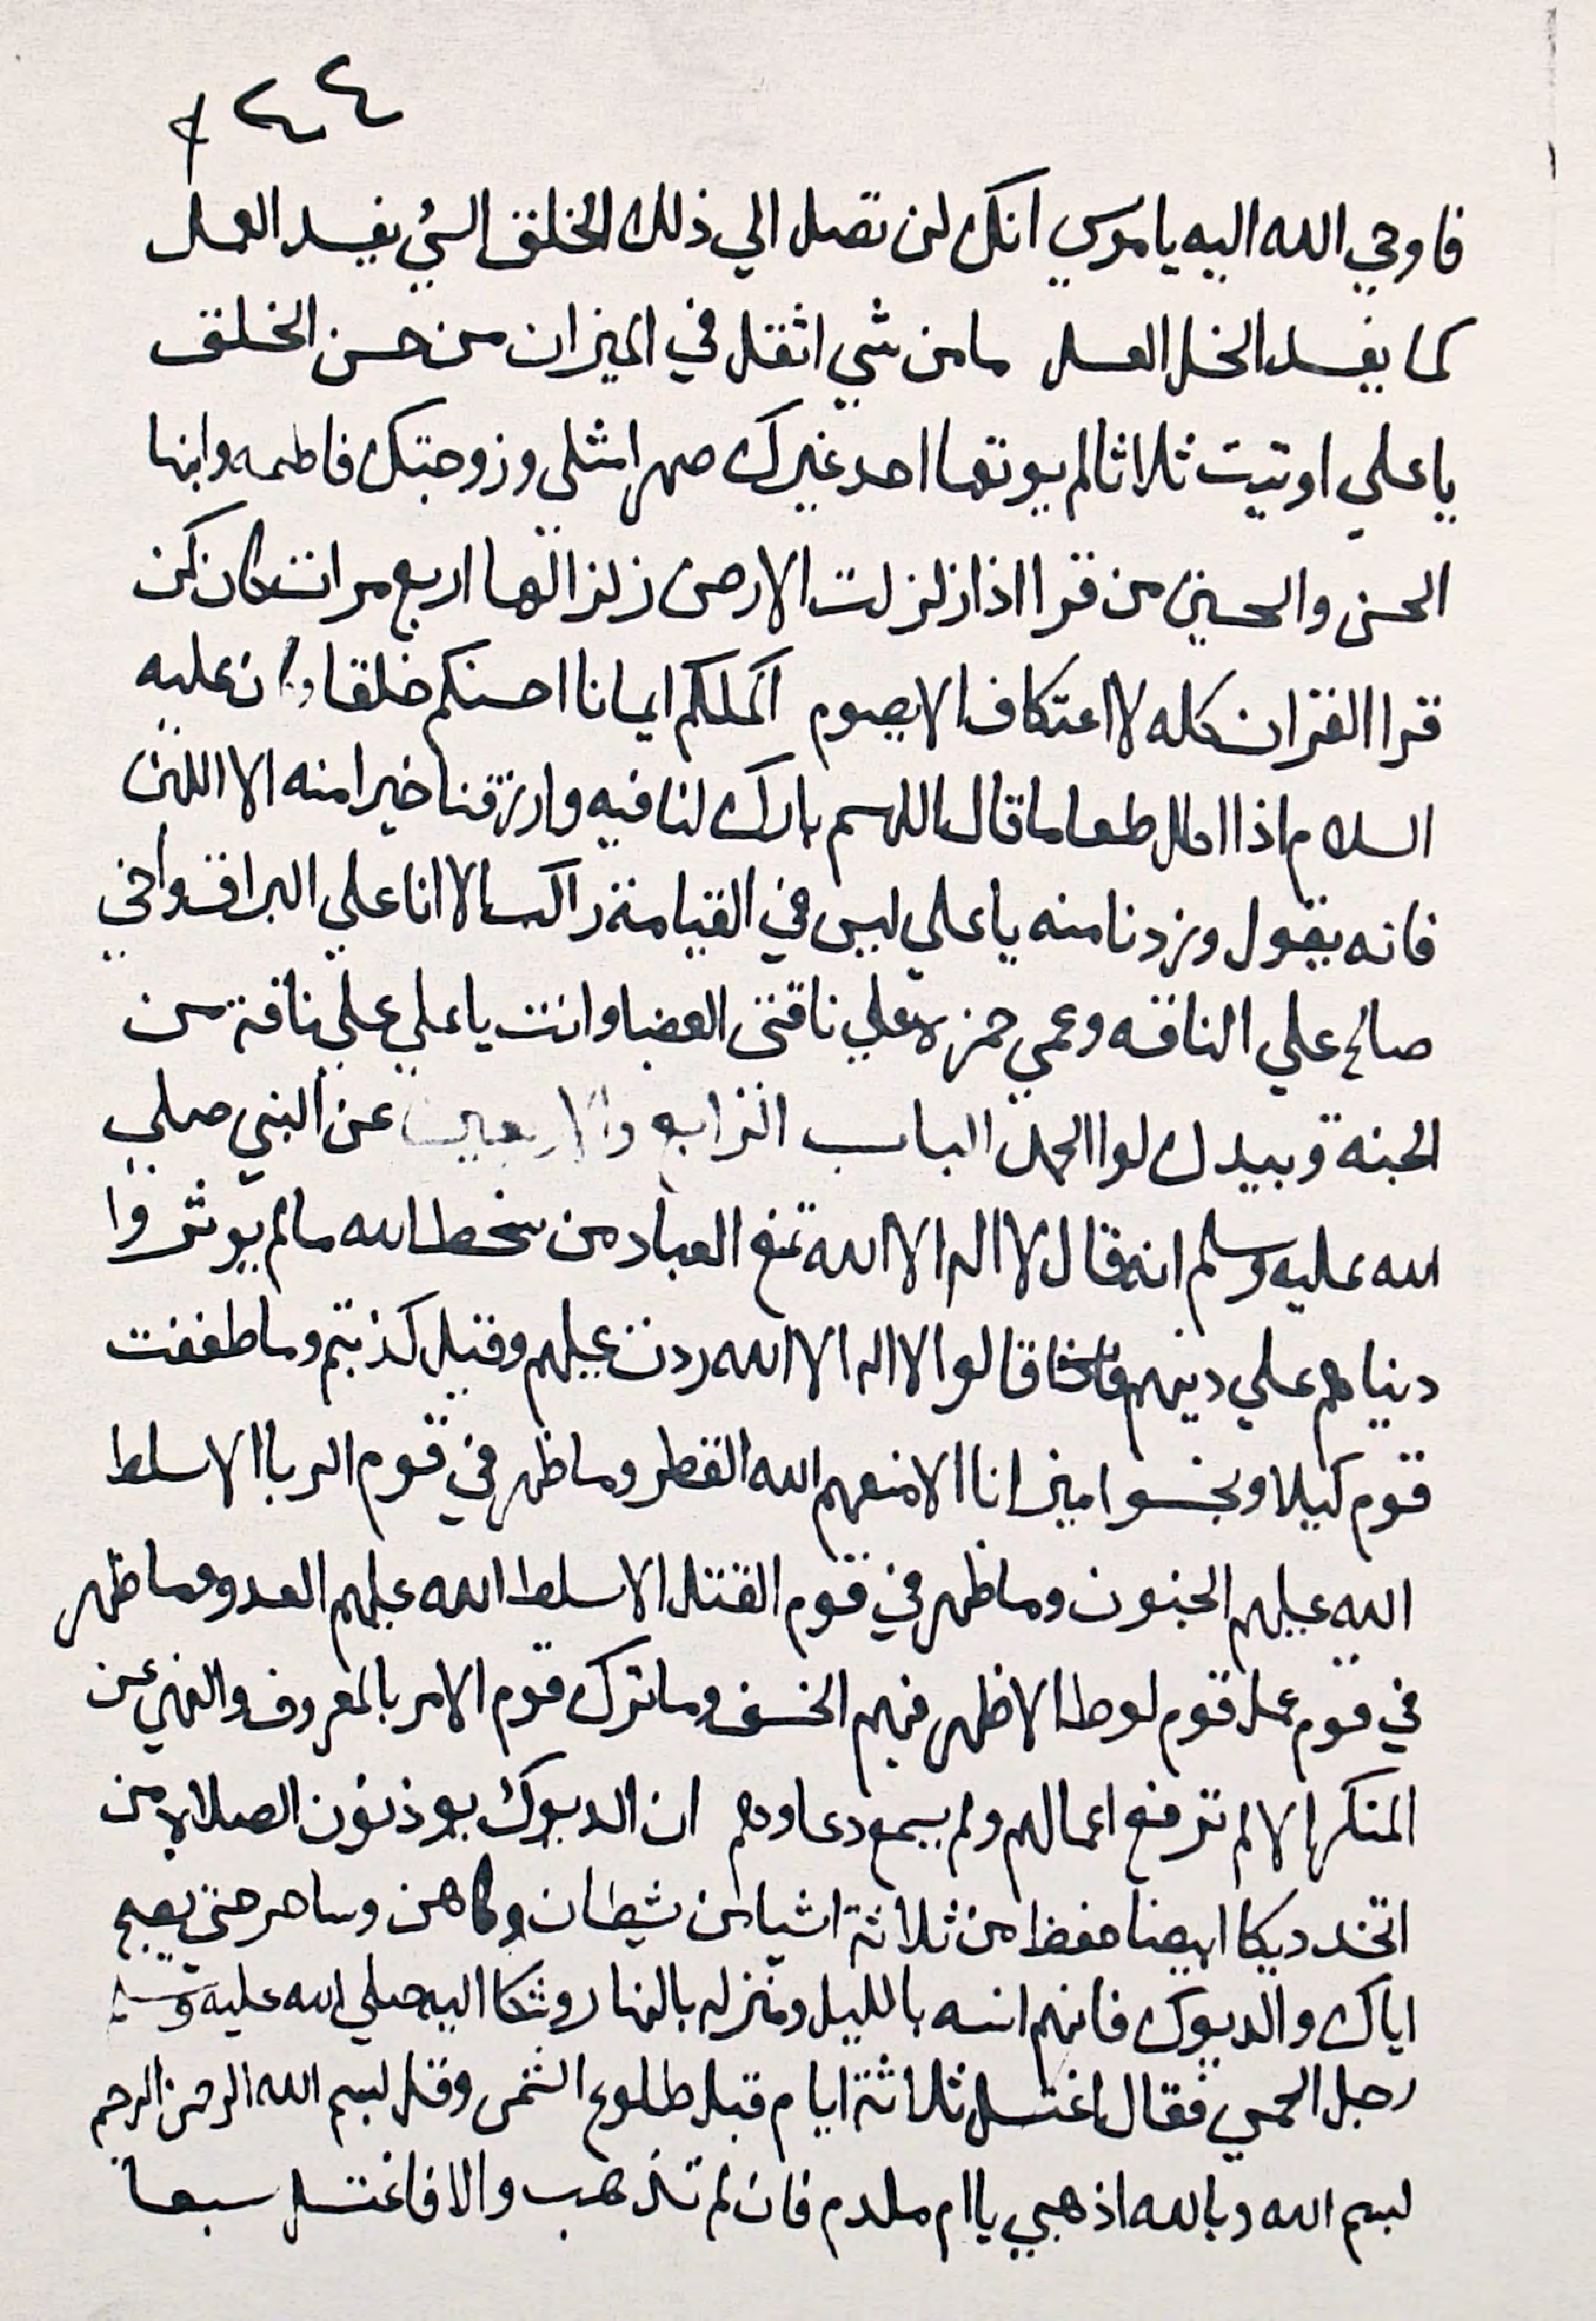 ٤٤
فاوحي الله اليه يا موسي انك لن تصل الي ذلك الخلق السئ يفسد العمل
كما يفسد الخل العسل ما من شي اثقل في الميزان من حسن الخلق
يا علي اوتيت ثلاثا لم يوتها احد غيرك صهرا مثلي وزوجتك فاطمه وابنها
الحسن والحسين من قرا اذا زلزلت الارض زلزالها اربع مرات كان كمن
قرا القران كله لا اعتكاف الا بصوم اكملكم ايمانا احسنكم خلقا وان عليه
السلام اذا اكل طعاما قال اللهم بارك لنا فيه وارزقنا خيرا منه الا اللبن
فانه يقول وزدنا منه يا علي ليس في القيامة راكب الا انا علي البراق واخي
صالح علي الناقه وعمي حمزة علي ناقتي العضبا وانت يا علي علي ناقة من
الجنة وبيدك لوا الحمد الباب الرابع والاربعين عن النبي صلي
الله عليه وسلم انه قال لا اله الا الله تمنع العباد من سخط الله ما لم يوثروا
دنياهم علي دينهم فاذا قالوا لا اله الا الله ردت عليهم وقيل كذبتم وما طففت
قوم كيلا وبخسوا ميزانا الا منعهم الله القطر وما ظهر في قوم الربا الا سلط
الله عليهم الجنون وما ظهر في قوم القتل الا سلط الله عليهم العدو وما ظهر
في قوم عمل قوم لوط الا ظهر فيهم الخسف وما ترك قوم الامر بالمعروف والنهي عن
المنكر الا لم ترفع اعمالهم ولم يسمع دعاوهم ان الديوك يوذنون الصلاة من
اتخد ديكا ابيضا حفظ من ثلاثة اشيا من شيطان وكاهن وساحر حتي يصبح
اياك والديوك فانهم انسه بالليل ومنزله بالنهار وشكا اليه صلي الله عليه وسلم
رجل الحمي فقال اغتسل ثلاثة ايام قبل طلوع الشمس وقل بسم الله الرحمن الرحيم
بسم الله وبالله اذهبي يا ام ملدم فان لم تذهب والا فاغتسل سبعا